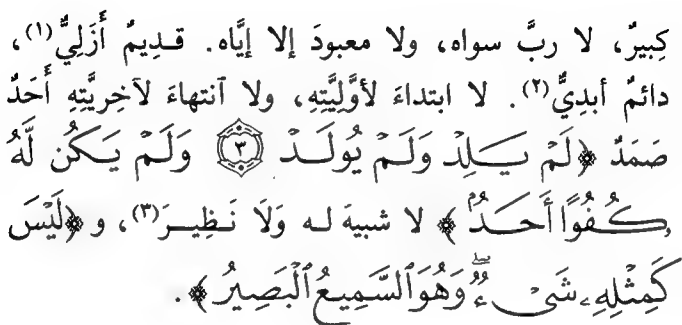 كَبِيرٌ، لا ربَّ سواه، ولا معبودَ إلا إيَّاه. قديمٌ أَزَلِيٌّ(١)،
دائمٌ أبدِيٌّ(٢). لا ابتداءَ لأوَّلِيَّتِهِ، ولا آنتهاءَ لآخِرِيَّتِهِ أَحَدٌ
صَمَدٌ ﴿لَمْ يَلِدْ وَلَمْ يُولَدْ ٣ وَلَمْ يَكُن لَّهُۥ
كُفُوًا أَحَدٌۢ﴾ لا شبيهَ له وَلَا نَظِيرَ(٣)، و﴿لَيْسَ
كَمِثْلِهِۦ شَىْءٌۖ وَهُوَ ٱلسَّمِيعُ ٱلْبَصِيرُ﴾.